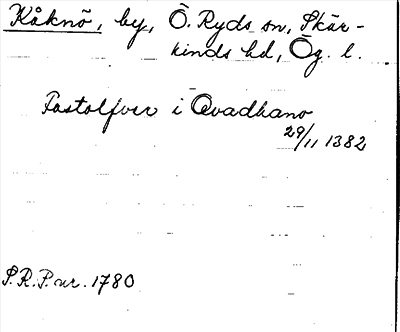 Kåknö, by, Ö. Ryds sn, Skär-
kinds hd, Ög. l.
Fastolfver i Qvadkano
29/11 1382
S.R.P. nr. 1780